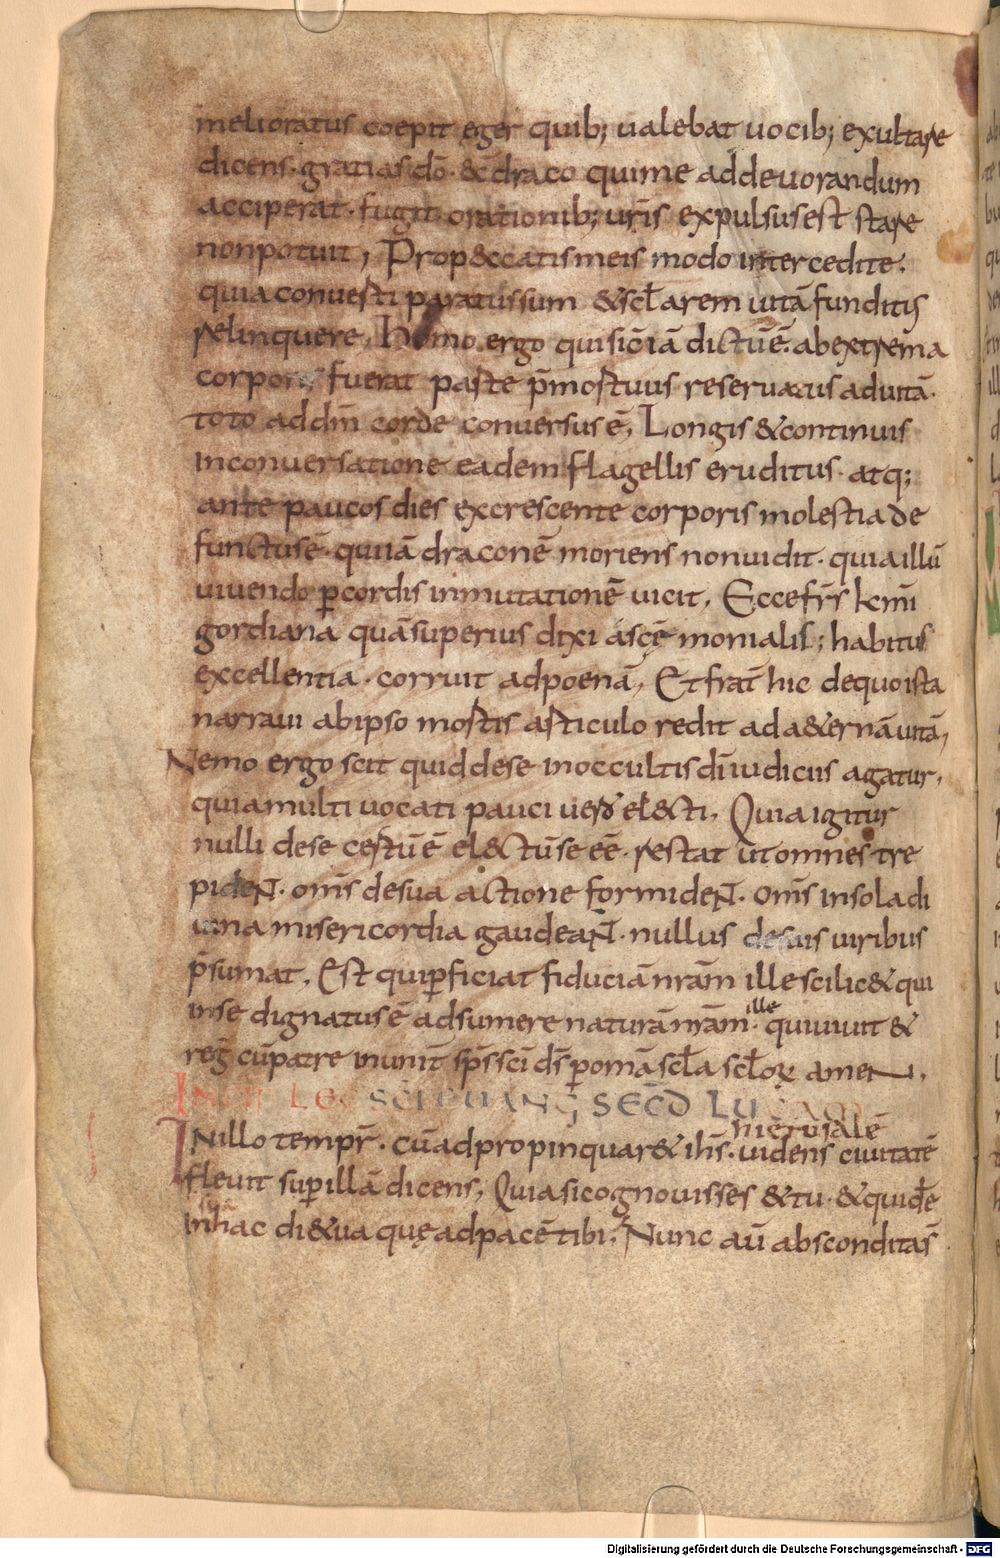 melioratus coepit eger quib; ualebat uocib; exultare
dicens · gratias dō · & draco qui me ad deuorandum
acciperat · fugit orationib; ur̄is expulsus est stare
non potuit, Pro p&ccatis meis modo intercedite ·
quia conuerti paratus sum & scl̄arem uitā funditus
relinquere, Homo ergo qui sic iā dictū ē · ab extrema
corporis fuerat parte p̄mortuus reseruatus ad uitā ·
toto ad dm̄ corde conuersus ē, Longis & continuis
in conuersatione eadem flagellis eruditus · atq;
ante paucos dies excrescente corporis molestia de
functus ē · qui iā draconē moriens non uidit · quia illū
uiuendo p̄ cordis inmutationē uicit, Ecce fr̄s k̄mi
gordiana quā superius dixi a sc̄e monialis; habitus
excellentia · corruit ad poenā, Et frat̄ hic de quo ista
narraui ab ipso mortis articulo redit ad a&ernā uitā,
Nemo ergo scit quid de se in occultis dī iudiciis agatur,
quia multi uocati pauci uero el&ti, Quia igitur
nulli de se certū ē el&tū se eē · restat ut omnes tre
pideNt · om̄s de sua actione formideNt · om̄s in sola di
uina misericordia gaudeaNt · nullus de suis uiribus
p̄sumat, Est qui p̄ficiat fiduciā nr̄am ille scilic& qui
in se dignatus ē adsumere naturā nr̄am · ille qui uiuit &
reḡ cū patre in unit̄ sp̄s sc̄i ds̄ p̄ omā scl̄a scl̄oꝝ amen,
INCIP LEC SCI EUANG SECD LUCAM
IN illo temp̄r · cū adpropinquar& ih̄s · hierusalē uidens ciuitatē
fleuit sup̄ illā dicens, Quia si cognouisses & tu · & quidē
in hac die tua quę ad pacē tibi; Nunc aū abscondita s̄
Digitalisierung gefördert durch die Deutsche Forschungsgemeinschaft - DFG